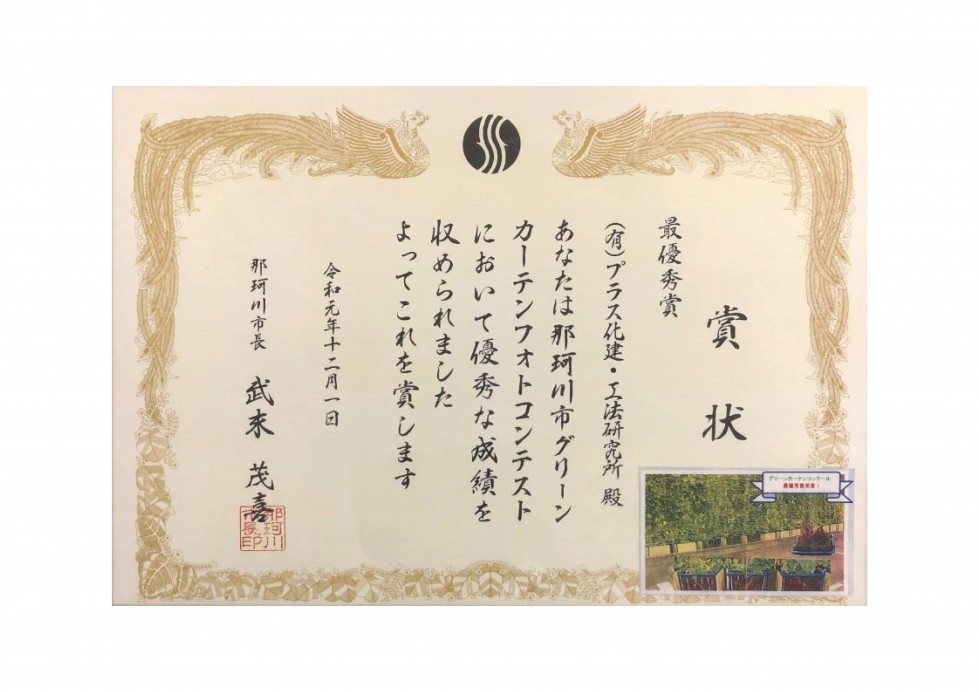 賞状
最優秀賞
(有)プラス化建・工法研究所 殿
あなたは那珂川市グリーン
カーテンフォトコンテスト
において優秀な成績を
収められました
よってこれを賞します
令和元年十二月一日
那珂川市長 武末 茂喜
那珂川
市長印
グリーンカーテンコンクール
最優秀賞受賞！